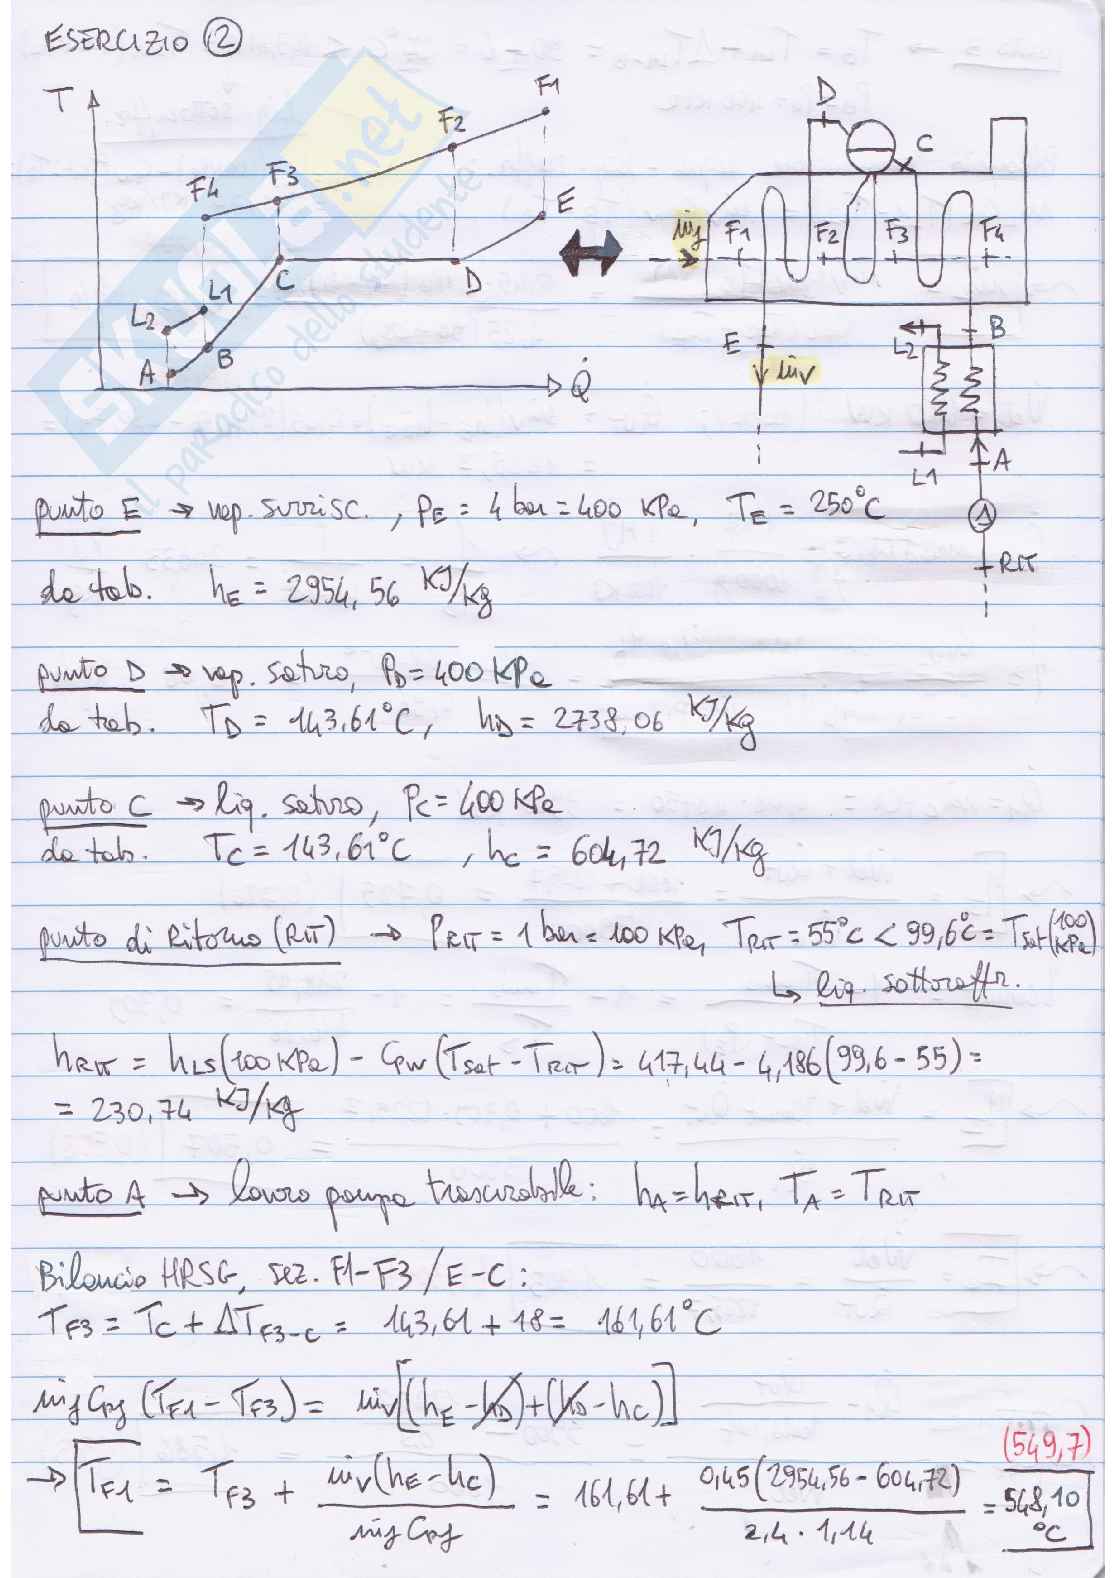 ESERCIZIO ②
T
F1
F2
F3
F4
E
D
C
L1
L2
B
A
Q̇
D
C
ṁf
F1
F2
F3
F4
E
ṁv
B
L2
L1
A
RIT
SKUOLA.net
il paradiso dello studente
punto E → vap. surrisc. , PE = 4 bar = 400 KPa, TE = 250°C
da tab. hE = 2954,56 KJ/Kg
punto D → vap. saturo, PD = 400 KPa
da tab. TD = 143,61°C, hD = 2738,06 KJ/Kg
punto C → liq. saturo, PC = 400 KPa
da tab. TC = 143,61°C , hC = 604,72 KJ/Kg
punto di Ritorno (RIT) → PRIT = 1 bar = 100 KPa, TRIT = 55°C < 99,6°C = Tsat (100 KPa)
↳ liq. sottoraffr.
hRIT = hLS (100 KPa) - Cpw (Tsat - TRIT) = 417,44 - 4,186 (99,6 - 55) =
= 230,74 KJ/Kg
punto A → lavoro pompa trascurabile: hA = hRIT, TA = TRIT
Bilancio HRSG, sez. F1-F3 / E-C :
TF3 = TC + ΔTF3-C = 143,61 + 18 = 161,61°C
ṁf Cpf (TF1 - TF3) = ṁv [(hE - hD) + (hD - hC)]
(549,7)
→ TF1 = TF3 + ṁv (hE - hC) / ṁf Cpf = 161,61 + 0,45 (2954,56 - 604,72) / 2,4 · 1,14 = 548,10 °C